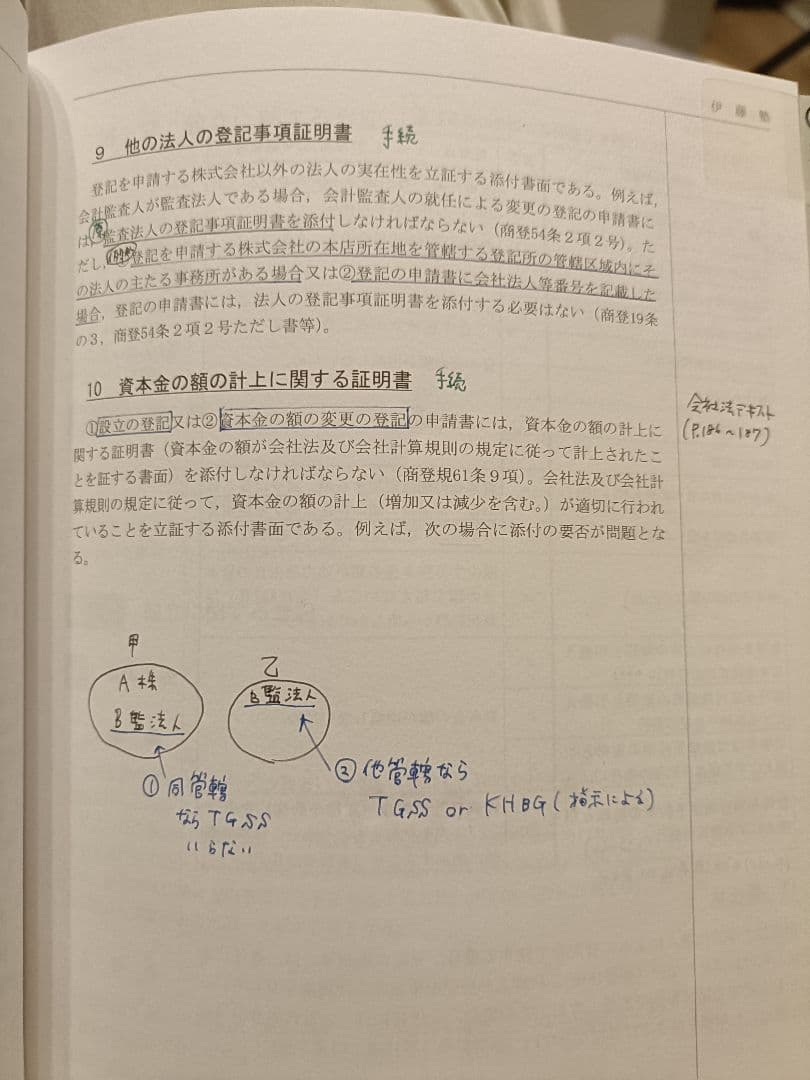 伊藤塾
9 他の法人の登記事項証明書 手続
登記を申請する株式会社以外の法人の実在性を立証する添付書面である。例えば,
会計監査人が監査法人である場合，会計監査人の就任による変更の登記の申請書に
は，監査法人の登記事項証明書を添付しなければならない（商登54条２項２号）。た
だし，登記を申請する株式会社の本店所在地を管轄する登記所の管轄区域内にそ
の法人の主たる事務所がある場合又は②登記の申請書に会社法人等番号を記載した
場合，登記の申請書には，法人の登記事項証明書を添付する必要はない（商登19条
の３，商登54条２項２号ただし書等）。
10 資本金の額の計上に関する証明書 手続
①設立の登記又は②資本金の額の変更の登記の申請書には，資本金の額の計上に
関する証明書（資本金の額が会社法及び会社計算規則の規定に従って計上されたこ
とを証する書面）を添付しなければならない（商登規61条９項）。会社法及び会社計
算規則の規定に従って，資本金の額の計上（増加又は減少を含む。）が適切に行われ
ていることを立証する添付書面である。例えば，次の場合に添付の要否が問題とな
る。
会社法テキスト
(P.186～187)
甲
A株
B監法人
乙
B監法人
①同管轄
ならTGSS
いらない
②他管轄なら
TGSS or KHBG(指示による)